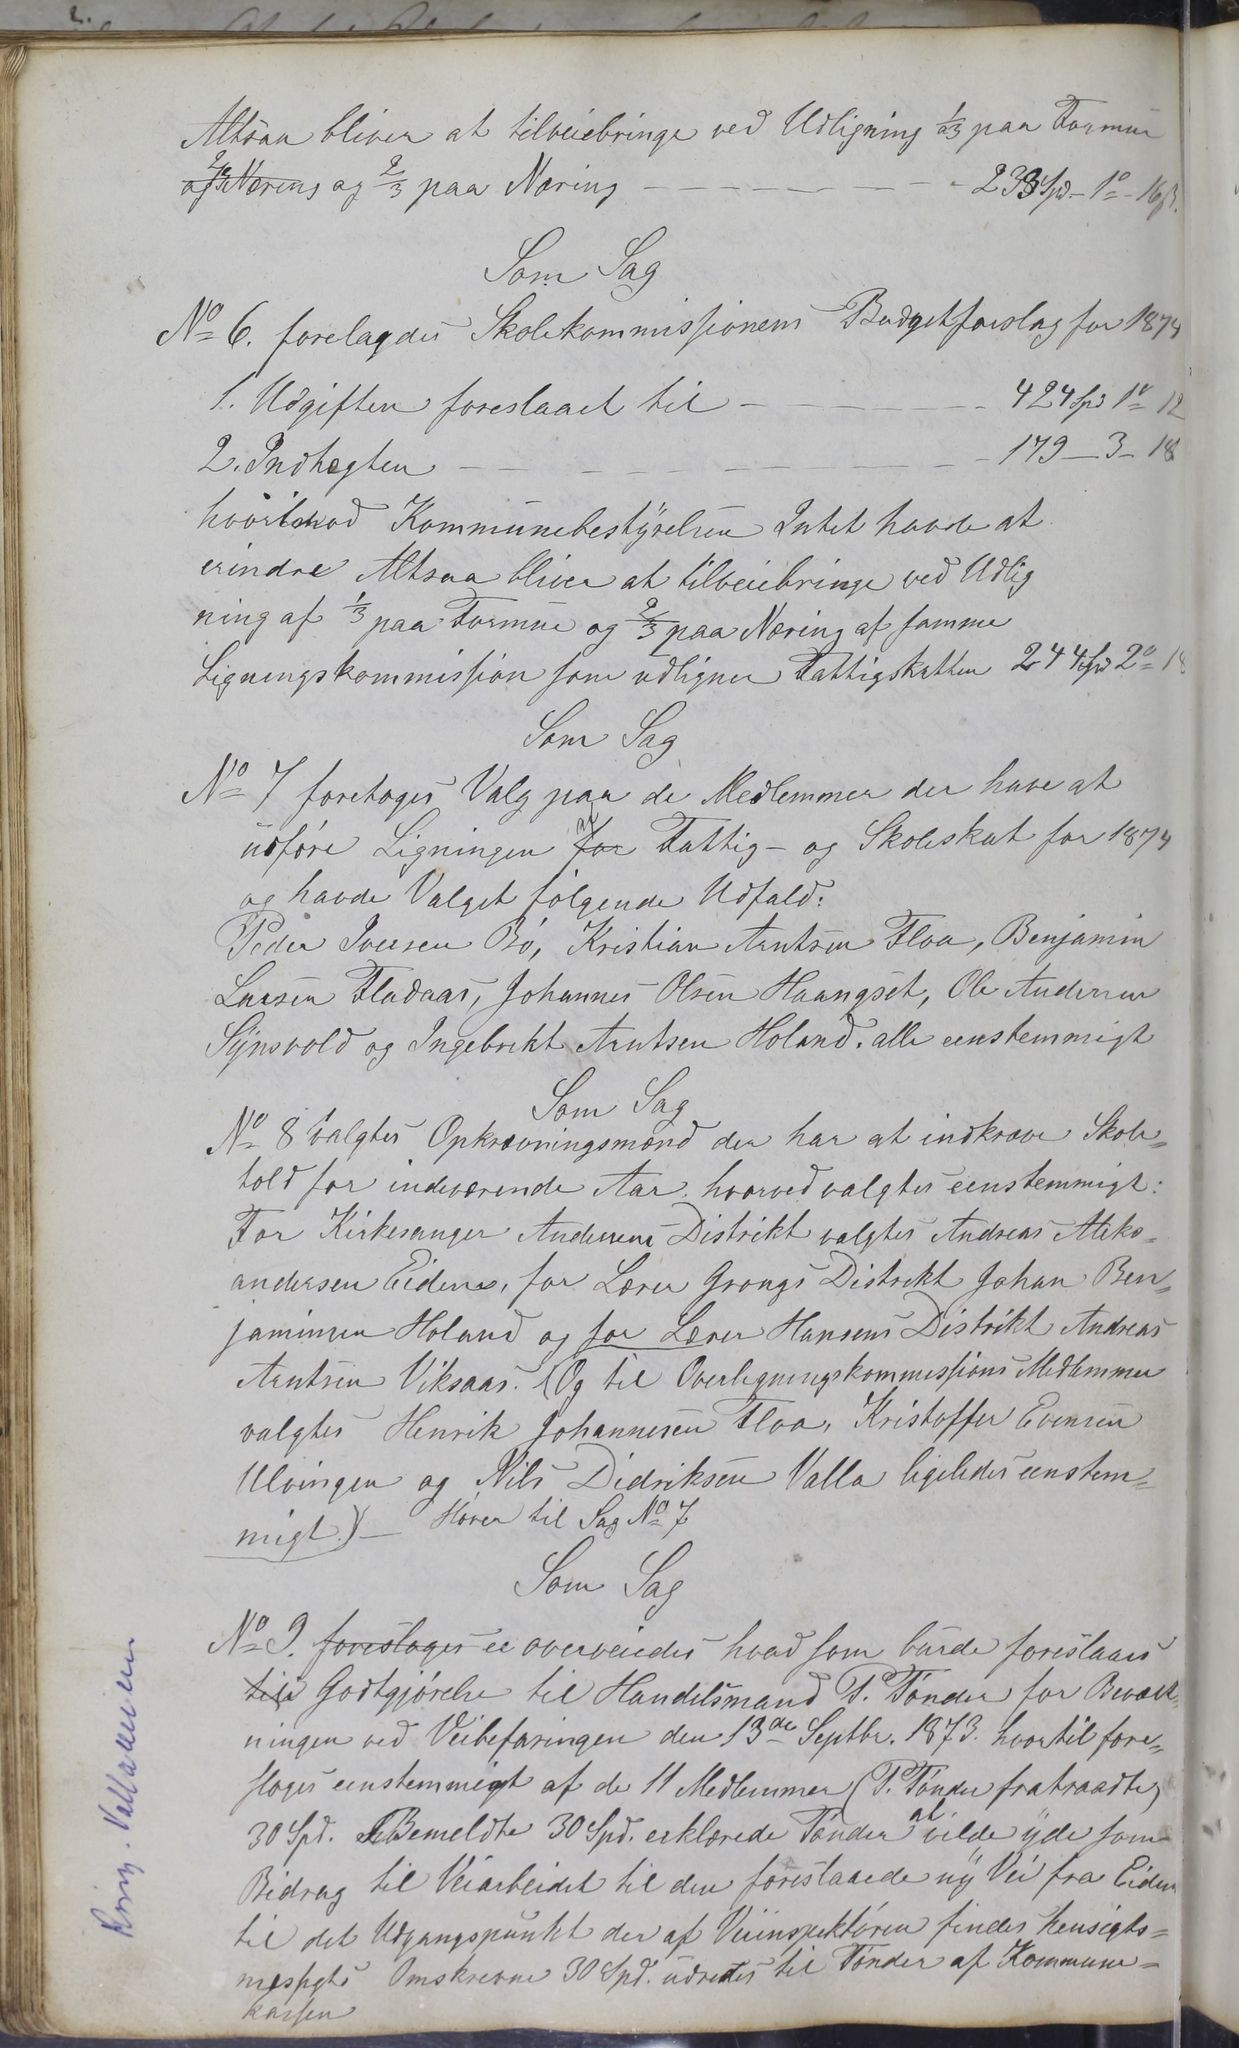 Altsaa bliver at tilveiebringe ved Udligning 1/3 paa Formue
2/3 Næring og 2/3 paa Næring — — — — — 233 Spd – 1º – 16 sk.
Som Sag
Nº 6. forelagdes Skolekommissionens Budgetforslag for 1874
1. Udgiften foreslaaet til — — — — 424 Spd 1º 12
2. Indtægten — — — — — — 179 – 3 – 18
hvorimod Kommunebestyrelsen Intet havde at
erindre Altsaa bliver at tilveiebringe ved Udlig
ning af 1/3 paa Formue og 2/3 paa Næring af samme
Ligningskommission som udligner Fattigskatten 244 Spd 2º 18
Som Sag
Nº 7 foretoges Valg paa de Medlemmer der have at
udføre Ligningen for af Fattig- og Skoleskat for 1874
og havde Valget følgende Udfald:
Peder Iversen Bø, Kristian Arntsen Floa, Benjamin
Larsen Fladaas, Johannes Olsen Haangset, Ole Andersen
Synsvold og Ingebrikt Arntsen Holand. alle eenstemmigt
Som Sag
Nº 8 valgtes Opkrævningsmænd der har at indkræve Skole-
told for indeværende Aar. hvorved valgtes eenstemmigt:
For Kirkesanger Andersens Distrikt valgtes Andreas Aleks-
andersen Eidem, for Lærer Grongs Distrikt Johan Ben-
jaminsen Holand og for Lærer Hansens Distrikt Andreas
Arntsen Viksaas. (Og til Overligningskommissions Medlemmer
valgtes Henrik Johannesen Floa, Kristoffer Evensen
Ulvingen og Nils Didriksen Valla ligeledes eenstem-
migt.) — Hører til Sag Nº 7
Som Sag
Nº 9. foresloges ee overveiedes hvad som burde foreslaaes
til Godtgjørelse til Handelsmand P. Tønder for Bevært-
ningen ved Veibefaringen den 13de Septbr. 1873. hvortil fore-
sloges eenstemmigt af de 11 Medlemmer (P. Tønder fratraadte)
30 Spd. Bemeldte 30 Spd. erklærede Tønder at vilde yde som
Bidrag til Veiarbeidet til den foreslaaede ny Vei fra Eidem
til det Udgangspunkt der af Veiinspektøren findes hensigts-
mæssigts Omskrevne 30 Spd. udredes til Tønder af Kommune-
kassen